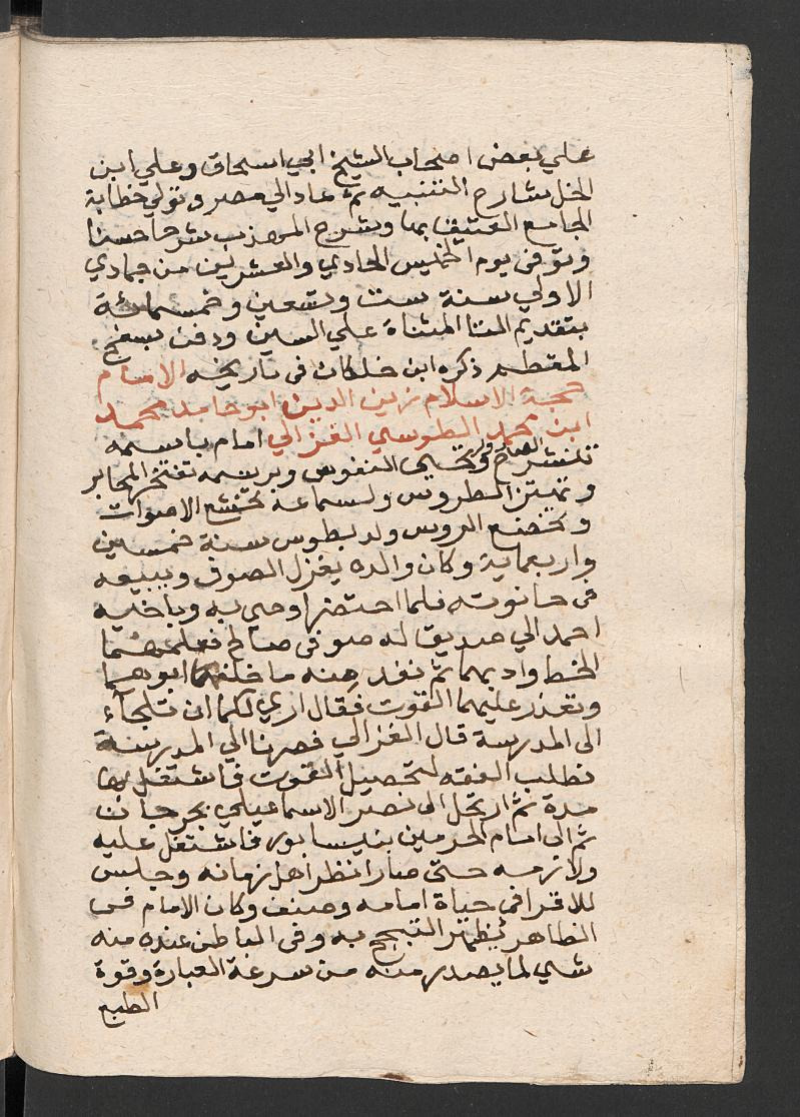 علي بعض اصحاب الشيخ ابي اسحاق وعلي ابن
الخل شارح التنبيه ثم عاد الي مصر وتولي خطابة
الجامع العتيق بها وشرح المهذب شرحا حسنا
وتوفى يوم الخميس الحادي والعشرين من جمادي
الاولي سنة ست وتسعين وخمسمائة
بتقديم التا المثناة علي السين ودفن بسفح
المقطم ذكره ابن خلكان فى تاريخه الامام
حجة الاسلام زين الدين ابو حامد محمد
ابن محمد الطوسي الغزالي امام باسمه
تنشرح الصدور وتحيى النفوس وبرسمه تفتخر المحابر
وتهتز الطروس ولسماعه تخشع الاصوات
وتخضع الروس ولد بطوس سنة خمسين
واربعماية وكان والده يغزل الصوف ويبيعه
فى حانوته فلما احتضر اوصى به وباخيه
احمد الي صديق له صوفى صالح فعلمهما
الخط وادبهما ثم نفد منه ما خلفه ابوهما
وتعذر عليهما القوت فقال اري لكما ان تلجاء
الى المدرسة قال الغزالي فصرنا الي المدرسة
نطلب الفقه لتحصيل القوت فاشتغل بها
مدة ثم ارتحل الى نصر الاسماعيلي بجرجان
ثم الى امام الحرمين بنيسابور فاشتغل عليه
ولازمه حتى صار انظر اهل زمانه وجلس
للاقرا فى حياة امامه وصنف وكان الامام فى
الظاهر يظهر التبجح به وفى الباطن عنده منه
شي لما يصدر منه من سرعة العبارة وقوة
الطبع